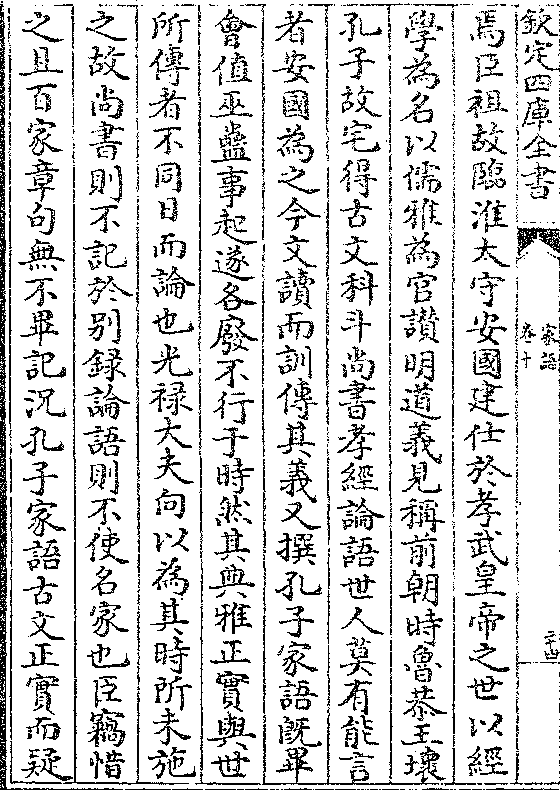 欽定四庫全書
家語
卷十
二十四
焉臣祖故臨淮太守安國建仕於孝武皇帝之世以經
學為名以儒雅為官讃明道義見稱前朝時魯恭王壞
孔子故宅得古文科斗尚書孝經論語世人莫有能言
者安國為之今文讀而訓傳其義又撰孔子家語既畢
會值巫蠱事起遂各廢不行于時然其典雅正實與世
所傳者不同日而論也光禄大夫向以為其時所未施
之故尚書則不記於别録論語則不使名家也臣竊惜
之且百家章句無不畢記況孔子家語古文正實而疑